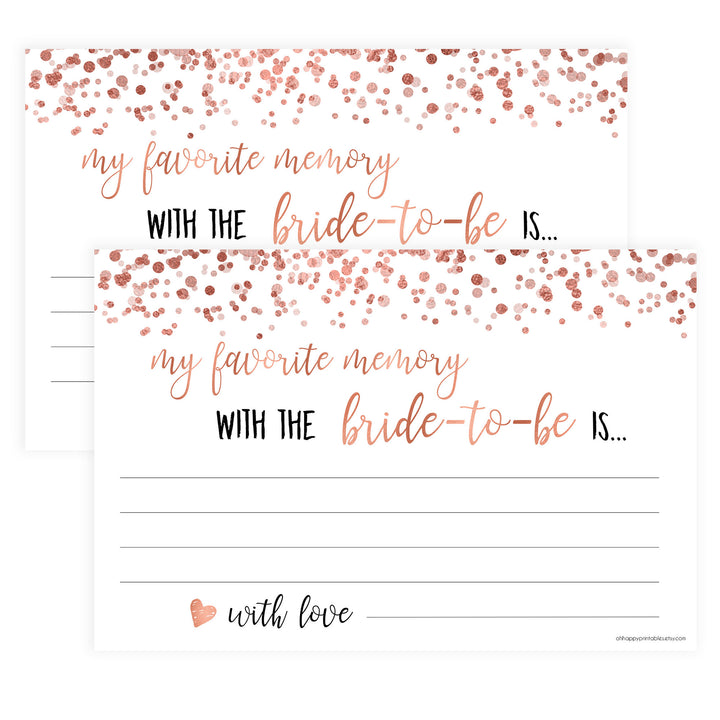 my favorite memory
WITH THE bride-to-be IS...
my favorite memory
WITH THE bride-to-be IS...
with love
ohhappyprintables.etsy.com